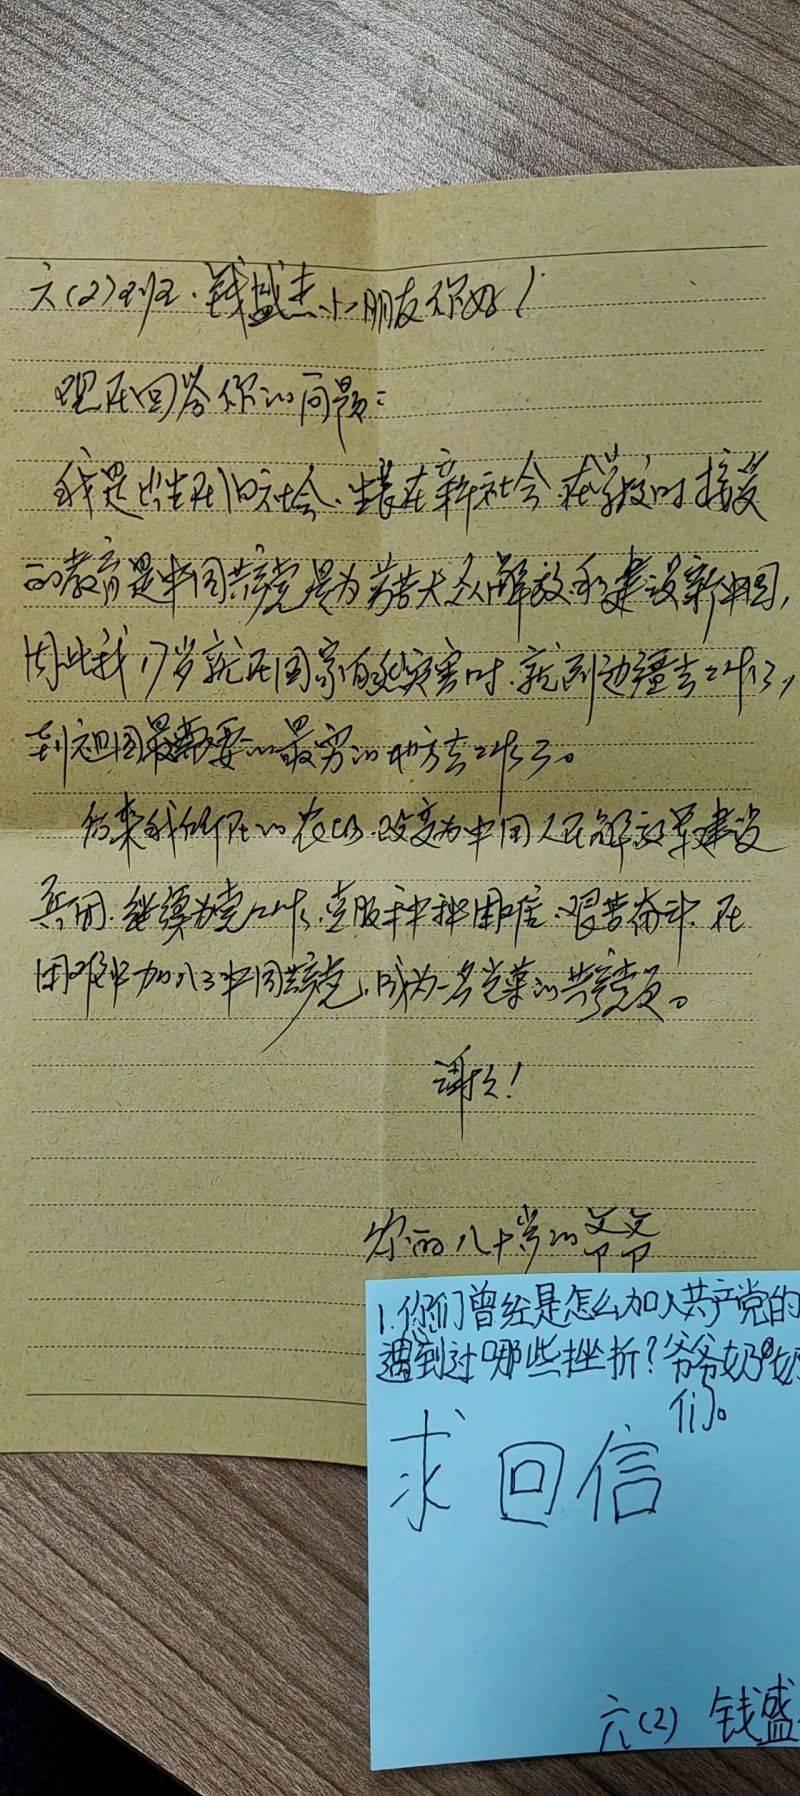 六(2)班.钱盛杰小朋友你好！
现在回答你的问题：
我是出生在旧社会.生长在新社会.在学校时接受
的教育是中国共产党是为劳苦大众解放和建设新中国，
因此我17岁就在国家自然灾害时.就到边疆去工作了，
到祖国最需要的最穷的地方去工作了。
后来我们所在的农场.改变为中国人民解放军建设
兵团.继续为党工作.克服种种困难.艰苦奋斗.在
困难中加入了中国共产党，成为一名光荣的共产党员。
谢谢！
你的八十岁的爷爷
1.你们曾经是怎么加入共产党的
遇到过哪些挫折？爷爷奶奶
们。
求回信
六(2) 钱盛